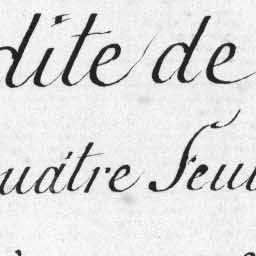 dite de
uatre Feui